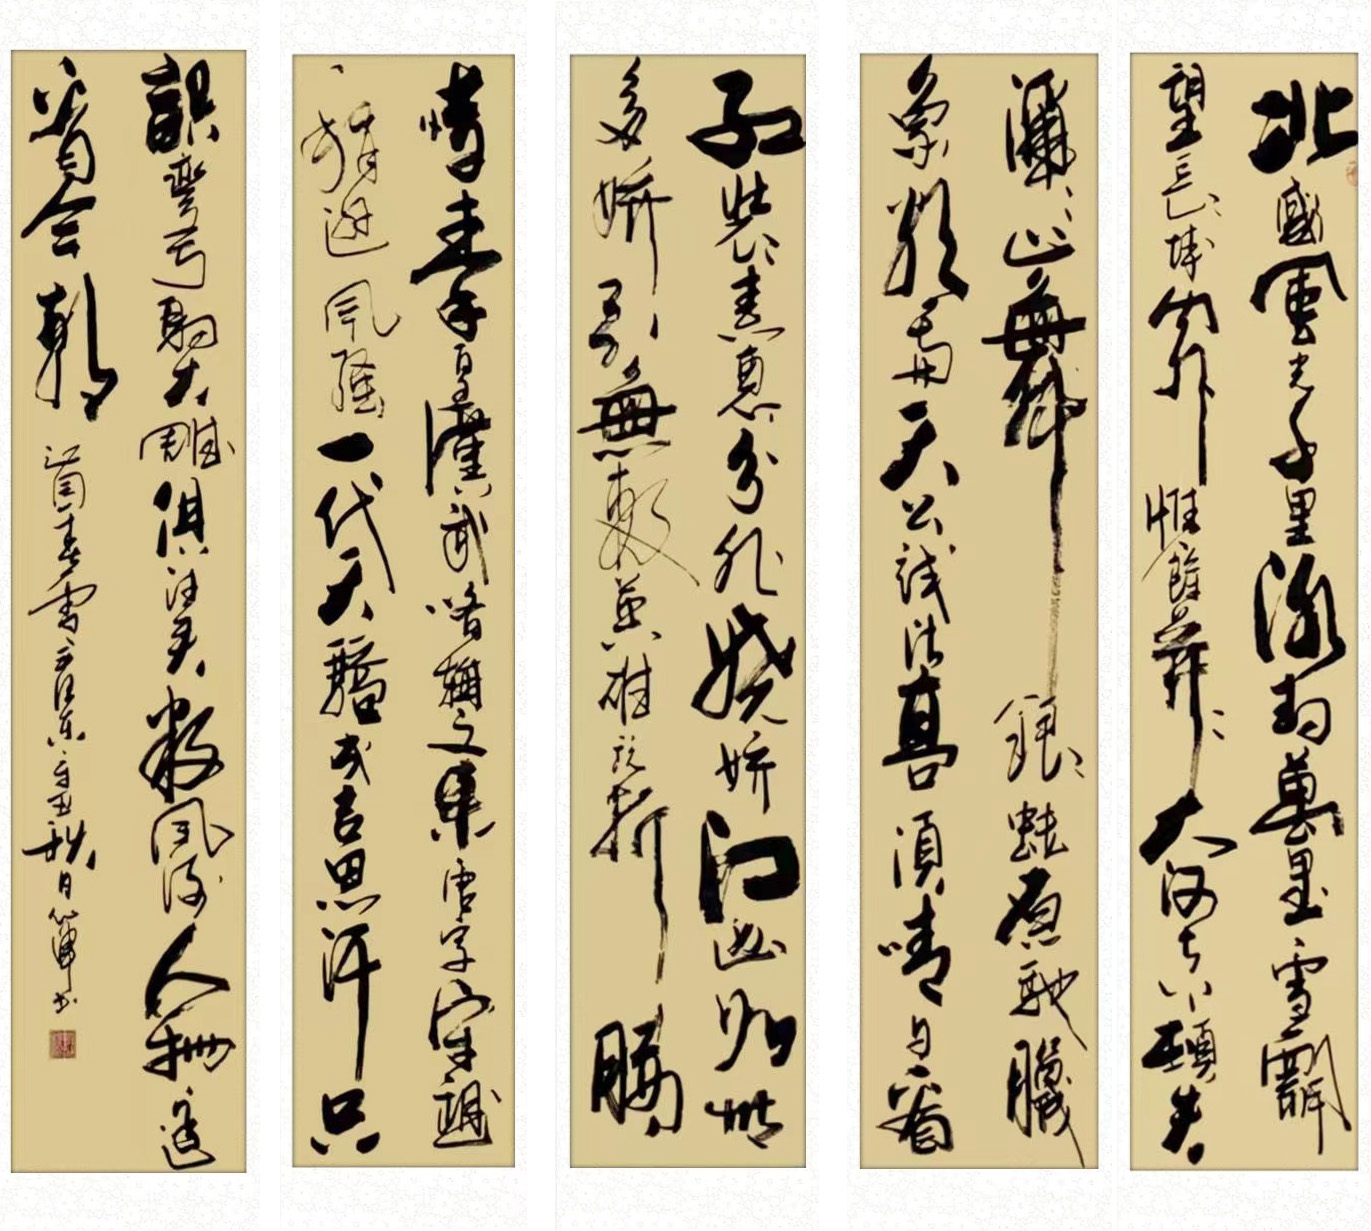 北國風光千里冰封萬里雪飄
望長城内外惟餘莽莽大河上下頓失
滔滔山舞銀蛇原馳臘
象欲與天公試比高須晴日看
紅裝素裹分外嬈嬌江山如此
多嬌引無數英雄競折腰
惜秦皇漢武略輸文采唐宗宋祖
稍遜風騷一代天驕成吉思汗只
識彎弓射大雕俱往矣數風流人物還
看今朝
沁園春雪毛澤東辛丑秋日書